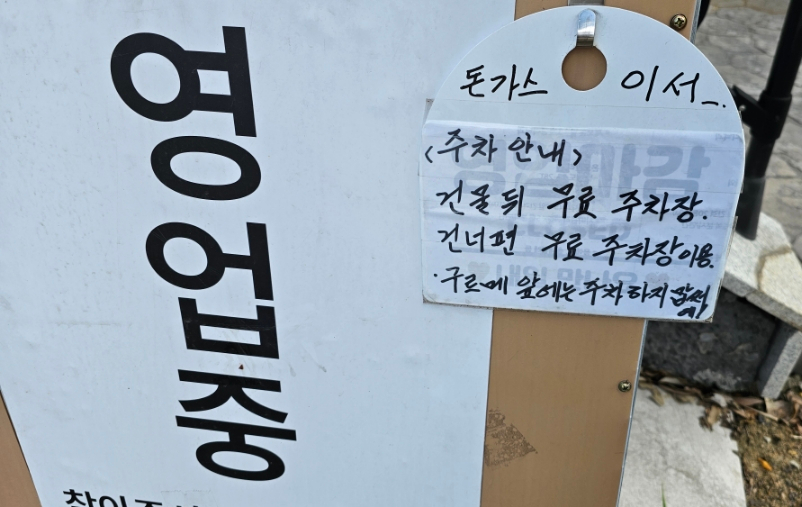 영업중
돈가스 이서
<주차 안내>
건물뒤 무료 주차장.
건너편 무료 주차장이용.
·구르메 앞에는 주차하지